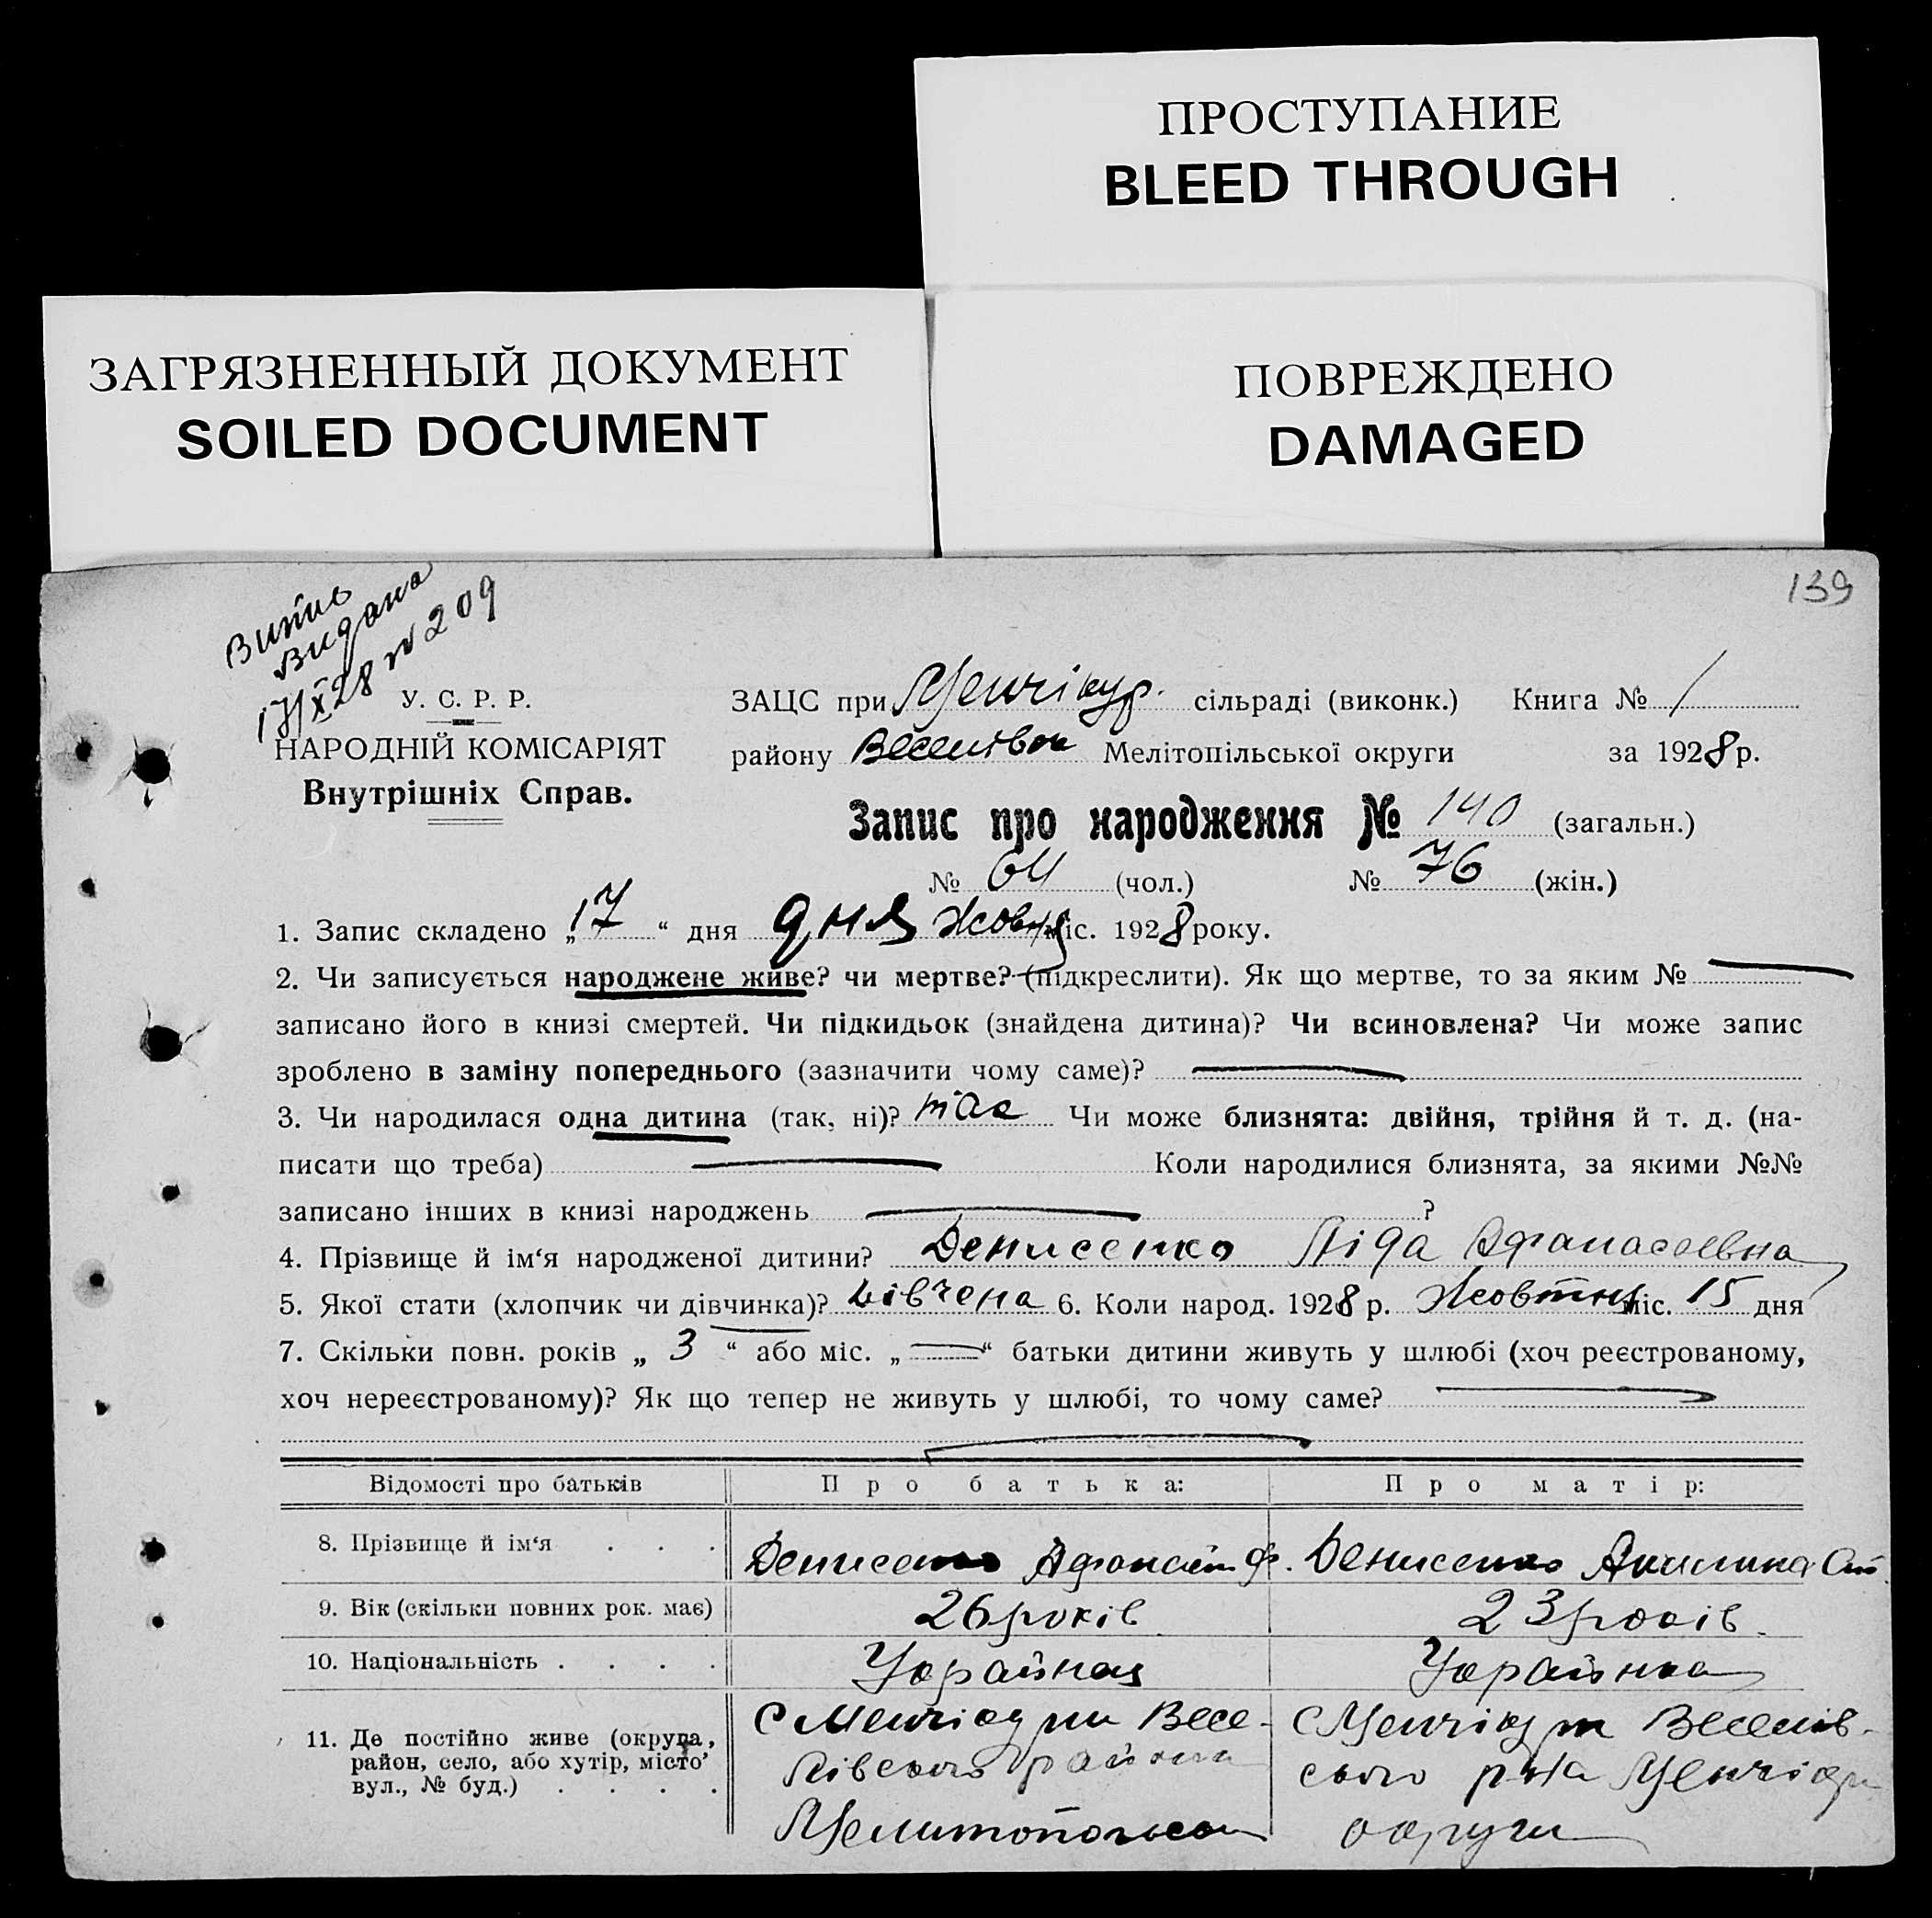 ПРОСТУПАНИЕ
BLEED THROUGH
ЗАГРЯЗНЕННЫЙ ДОКУМЕНТ
SOILED DOCUMENT
ПОВРЕЖДЕНО
DAMAGED
139
Витяг
Видана
17/X 28 № 209
У. С. Р. Р.
НАРОДНІЙ КОМІСАРІЯТ
Внутрішніх Справ.
ЗАЦС при Менчікур. сільраді (виконк.) Книга № 1
району Веселівськ Мелітопільської округи за 1928 р.
Запис про народження № 140 (загальн.)
№ 64 (чол.) № 76 (жін.)
1. Запис складено „17“ дня дня Жовтня міс. 1928 року.
2. Чи записується народжене живе? чи мертве? (підкреслити). Як що мертве, то за яким №
записано його в книзі смертей. Чи підкидьок (знайдена дитина)? Чи всиновлена? Чи може запис
зроблено в заміну попереднього (зазначити чому саме)?
3. Чи народилася одна дитина (так, ні)? так Чи може близнята: двійня, трійня й т. д. (на-
писати що треба) Коли народилися близнята, за якими №№
записано інших в книзі народжень ?
4. Прізвище й ім‘я народженої дитини? Денисенко Ліда Афанасьевна
5. Якої стати (хлопчик чи дівчинка)? Дівчена 6. Коли народ. 1928 р. Жовтня міс. 15 дня
7. Скільки повн. років „ 3 “ або міс. „ — “ батьки дитини живуть у шлюбі (хоч реєстрованому,
хоч нереєстрованому)? Як що тепер не живуть у шлюбі, то чому саме?
Відомості про батьків Про батька: Про матір:
8. Прізвище й ім‘я . . . Денисенко Афанасий Ф. Денисенко Акилина
9. Вік (скільки повних рок. має) 26 років 23 років.
10. Національність . . . . Українец Українка
11. Де постійно живе (округа, С Менчікури Весе- С Менчікури Веселів-
район, село, або хутір, місто, лівського района ського р-на
вул., № буд.) . . . . Мелитопольск округи